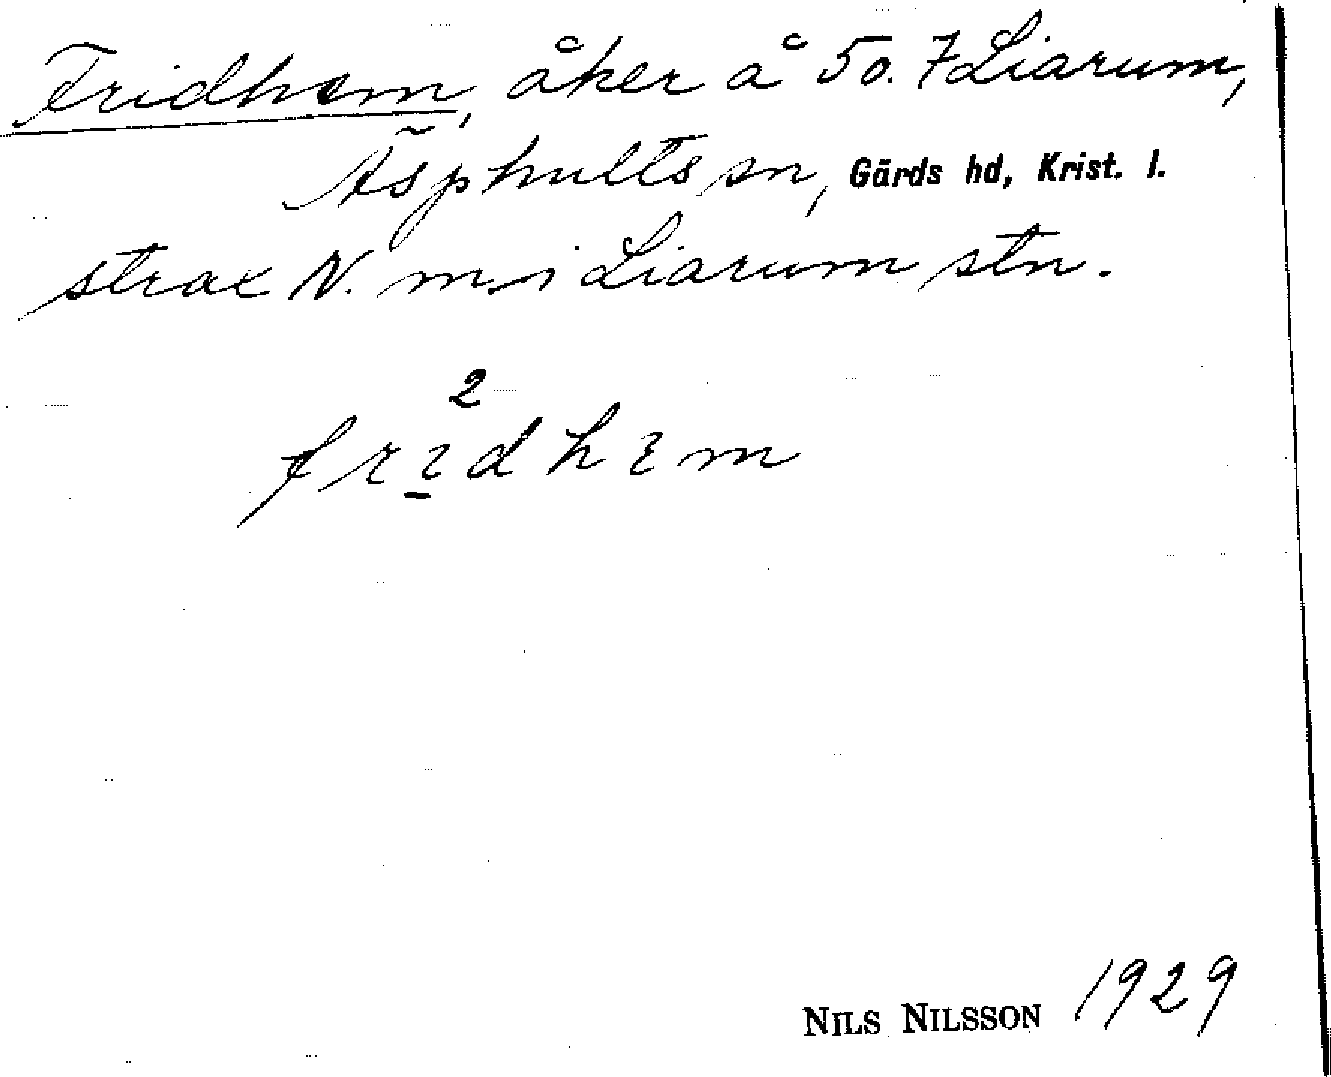 Fridhem, åker å 5o. 7 Liarum,
Äsphults sn, Gärds hd, Krist. l.
strax N. m. i Liarum stn.
2
frıdhɛm
NILS NILSSON 1929